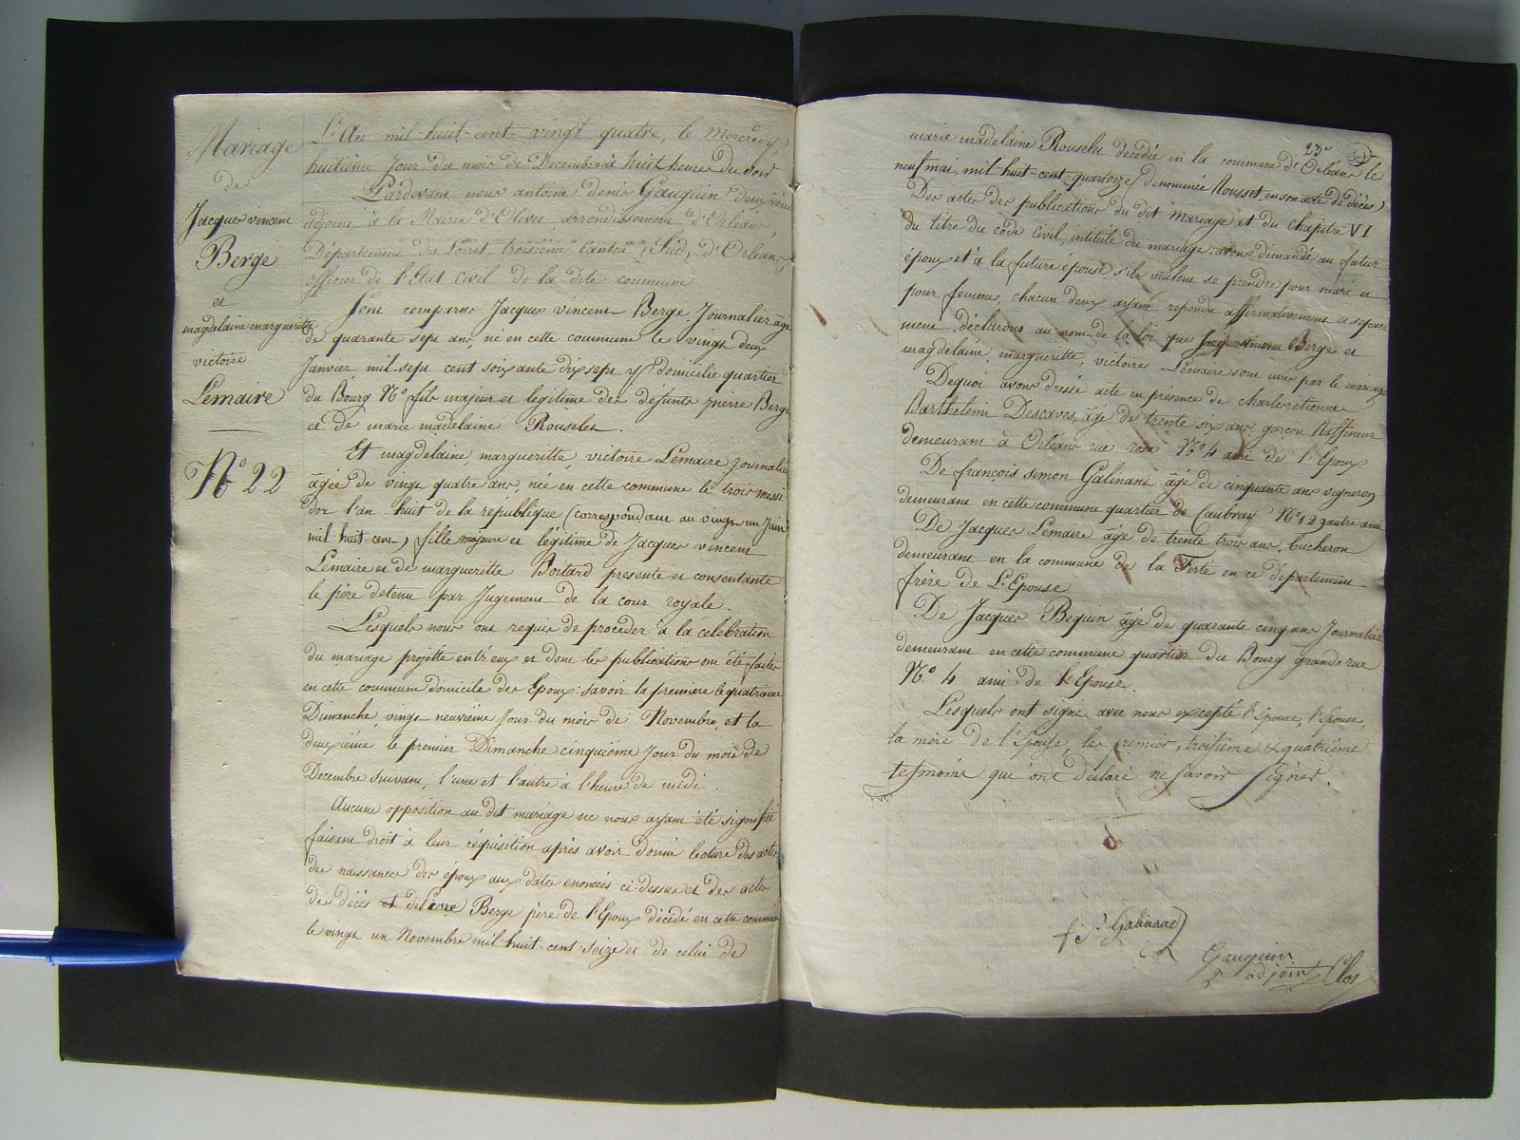 Mariage
de
Jacques vincent
Berge
et
magdelaine margueritte
victoire
Lemaire
N.o 22
L'An mil-huit-cent-vingt quatre, le Mercredy
huitieme Jour du mois de Decembre à huit heures du soir
Pardevant nous antoine denis Gauguin
adjoint à la Mairie d'Olivet, arrondissement d'Orléans,
Département du Loiret, troisieme Canton (Sud) d'Orleans,
officier de l'Etat Civil de la dite commune
Sont comparus Jacques vincent Berge Journalier agé
de quarante sept ans, né en cette commune le vingt deux
Janvier mil-sept cent soixante dix sept y domicilié quartier
du Bourg N.o fils majeur et legitime des defunts pierre Berge
et de marie madelaine Rouselet.
Et magdelaine, margueritte, victoire Lemaire Journaliere
agée de vingt quatre ans, née en cette commune le trois messi
dor l'an huit de la republique (correspondant au vingt un Juin
mil huit cent) fille majeure et légitime de Jacques vincent
Lemaire et de margueritte Boitard presente et consentante
le père detenu par Jugement de la cour royale.
Lesquels nous ont requis de proceder à la celebration
du mariage projetté entr'eux et dont les publications ont été faites
en cette commune domicile des Epoux: savoir la première le quatrieme
Dimanche, vingt-neuvième Jour du mois de Novembre, et la
deuxième le premier Dimanche cinquième Jour du mois de
Decembre suivant, l'une et l'autre à l'heure de midi.
Aucune opposition au dit mariage ne nous ayant été signifié
faisant droit à leur réquisition après avoir donné lecture des actes
de naissance des époux aux dates enoncés ci-dessus et des actes
de décès et de Pierre Berge père de l'Epoux décédé en cette commune
le vingt un Novembre mil-huit-cent seize et de celui de
23e
marie madelaine Rouselet décédée en la commune d'Orléans le
neuf mai, mil-huit-cent-quatorze (denommée Rousset en son acte de décès)
Des actes des publications du dit mariage et du chapitre VI
du titre du code civil, intitulé du mariage avons demandé au futur
époux et à la future épouse s'ils veulent se prendre pour mari et
pour femme, chacun deux ayant repondu affirmativement et separe
ment, déclarons au nom de la loi que Jacques vincent Berge et
magdelaine, margueritte, victoire Lemaire sont unis par le mariage
Dequoi avons dressé acte en présence de charles etienne
Barthelemi Descaves, âgé de trente six ans garçon Raffineur
demeurant à Orléans rue N.o 4 ami de l'Epoux
De françois simon Galinand âgé de cinquante ans vigneron
demeurant en cette commune quartier de Caubray N.o 12 autre ami
De Jacques Lemaire âgé de trente trois ans, bucheron
demeurant en la commune de la Ferté en ce departement
frère de l'Epouse
De Jacques Bequin âgé de quarante cinq ans Journalier
demeurant en cette commune quartier du Bourg grande rue
N.o 4 ami de l'Epouse.
Lesquels ont signé avec nous excepté l'Epoux, l'Epouse,
la mère de l'épouse, les premier, troisième & quatrième
tesmoins qui ont déclaré ne savoir signer.
f. S. Galinand
Gauguin
adjoint